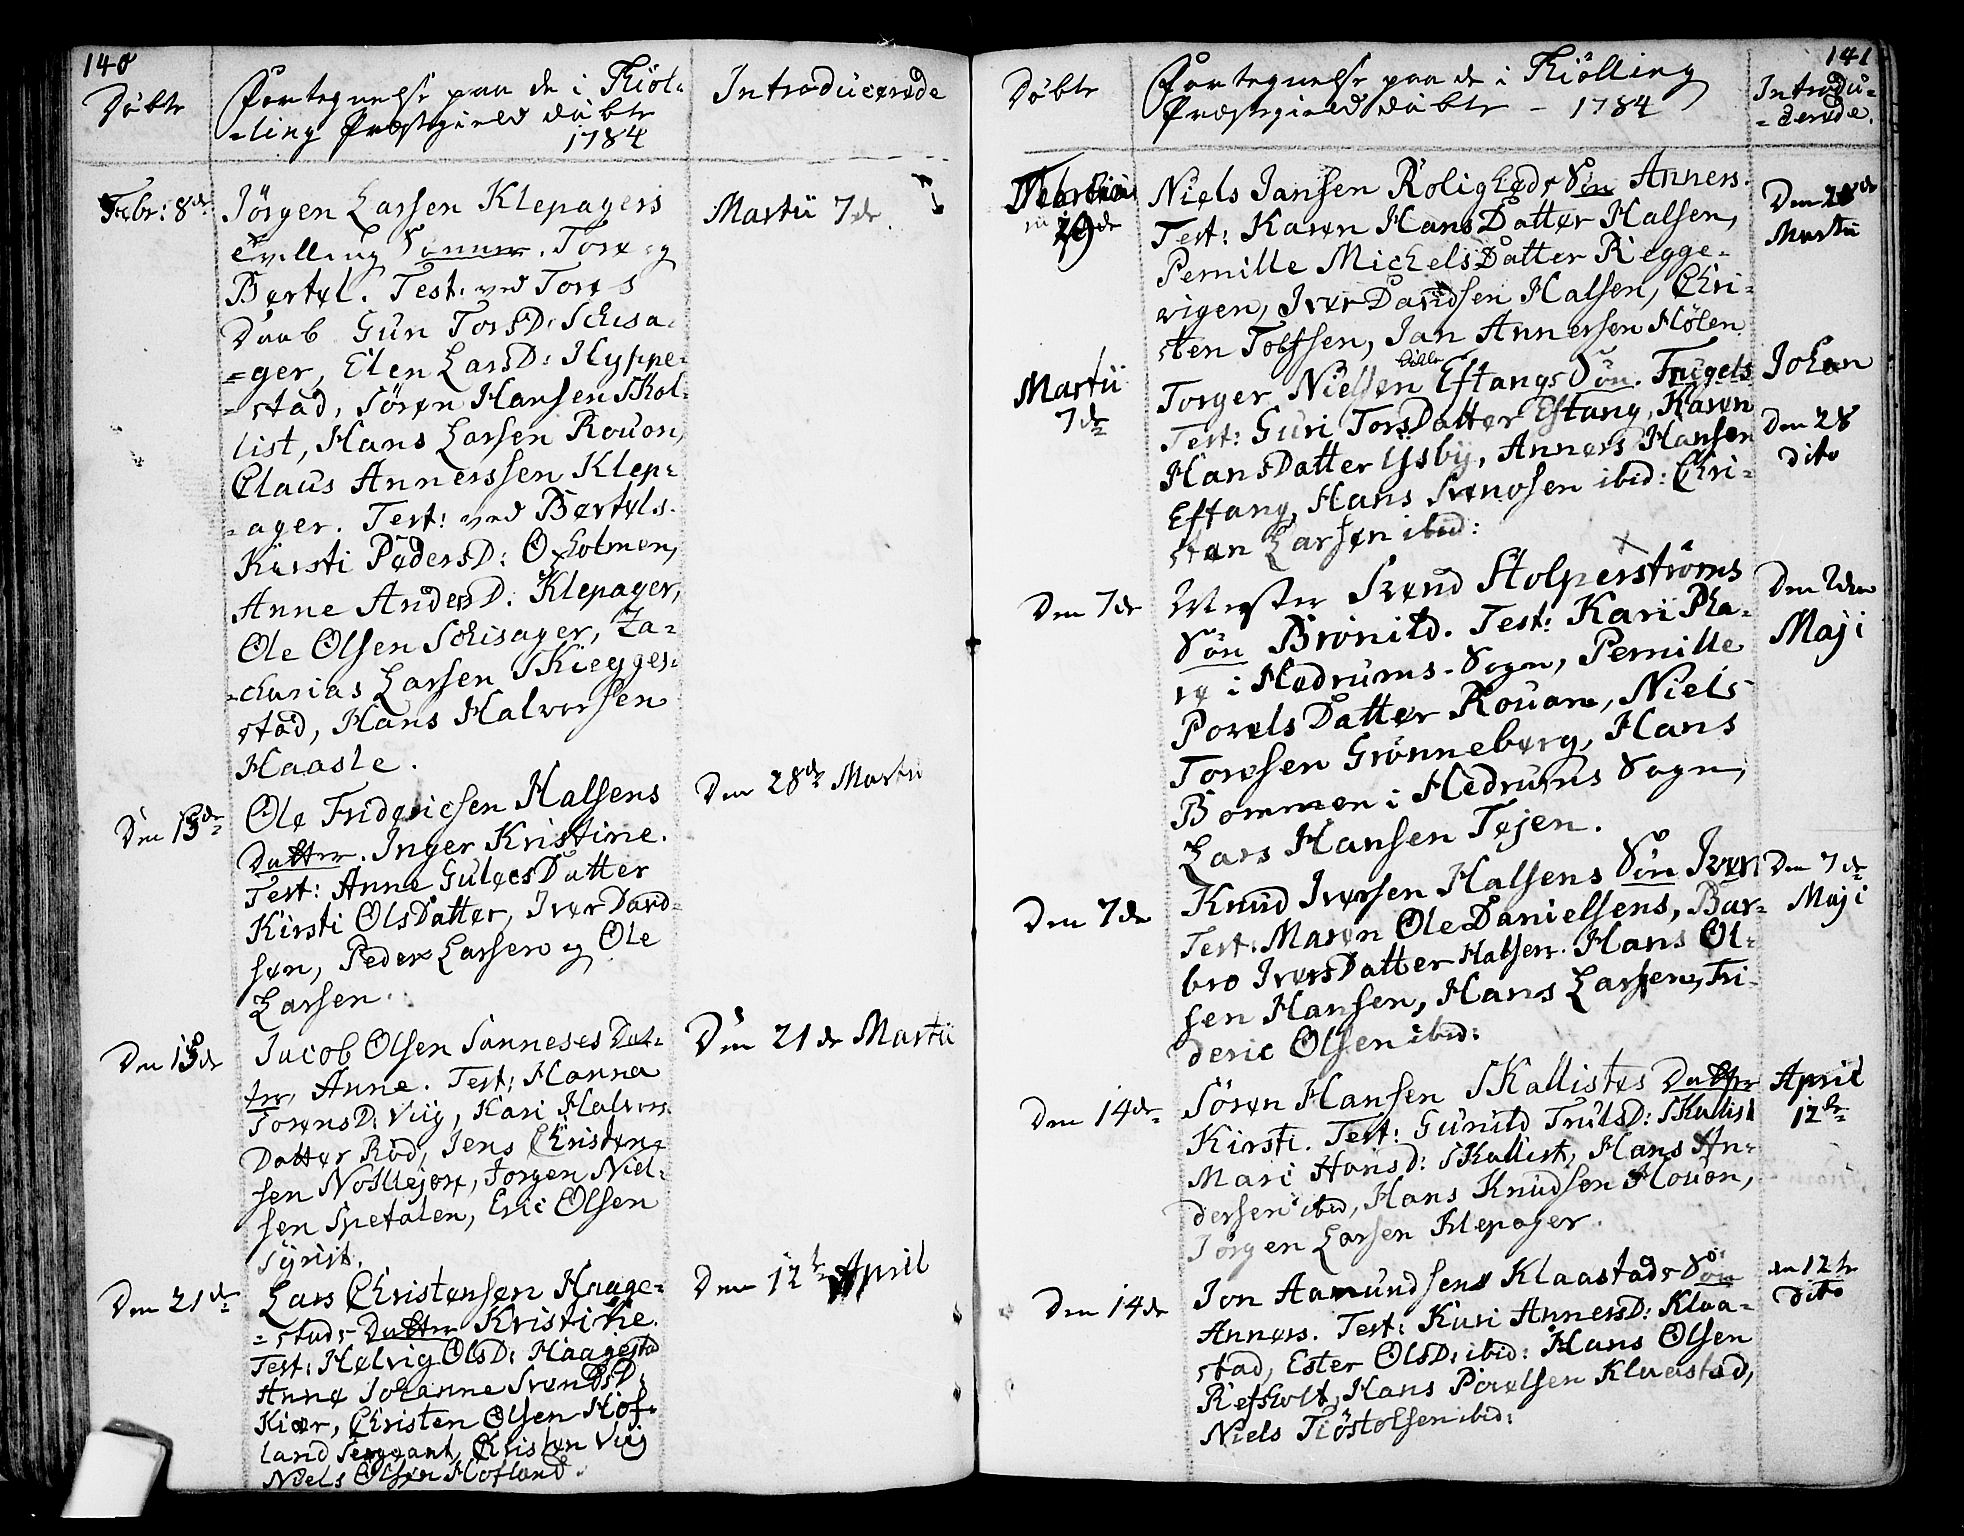 140
Døbte
Fortegnelse paa de i Kiöl-
-ling Præstegield døbte
1784
Introducerede
Febr: 8de
Jørgen Larsen Klepagers
Tvilling Sønner. Tore og
Bertel. Test: ved Tores
Daab Gun TorsD: Schisa-
=ger, Elen LarsD: Hyppe-
-stad, Søren Hansen Skal-
list, Hans Larsen Rouon,
Claus Annerssen Klep-
-ager. Test: ved Bertels.
Kirsti PedersD: Oxholmen,
Anne AndersD: Klepager,
Ole Olsen Schisager, Za-
-charias Larsen Skiegges-
stad, Hans Halvorsen
Haasle.
Martii 7de
Den 15de
Ole Fridericsen Halsens
Datter. Inger Kristine.
Test: Anne GulovsDatter
Kirsti OlsDatter, Iver David-
sen, Peder Larsen og Ole
Larsen.
Den 28de Martii
Den 15de
Jacob Olsen Sanneses Dat-
ter, Anne. Test: Hanna
TorensD: Viig, Kari Halvors
Datter Röd, Jens Christen-
sen Nollejore, Jørgen Niel-
sen Spetalen, Eric Olsen
Syrist.
Den 21de Martii
Den 21de
Lars Christensen Haage-
=stads Datter Kristine.
Test: Helvig OlsD: Haagestad
Anne Johanne SvendsD:
Kiær, Christen Olsen Hof-
land Sergeant, Christen Viig
Niels Olsen Hofland.
Den 12te April
141
Døbte
Fortegnelse paa de i Kiölling
Præstegield døbte - 1784
Introdu-
=cerede.
29de
Niels Jansen Roligheds Søn Anners.
Test: Karen HansDatter Halsen,
Pernille MichelsDatter Riegge-
vigen, Iver Davidsen Halsen, Chri-
sten Tolfsen, Jan Annersen Hölen
Den 28de
Martii
Martii
7de
Torger Nielsen lille Eftangs Søn. Trugels
Test: Guri TorsDatter Eftang, Karen
HansDatter Ysby, Anners Hansen
Eftang, Hans Svensen ibid: Chri-
sten Larsen ibid:
Johan
Den 28
dito
Den 7de
Mester Svend Stolperströms
Søn Brönild. Test: Kari Pha-
re i Hedrums-Sogn, Pernille
PovelsDatter Rouam, Niels
Toresen Grönneberg, Hans
Bommen i Hedrums Sogn,
Lars Hansen Tejen.
Den 2den
Maji
Den 7de
Knud Iversen Halsens Søn Iver
Test: Maren Ole Danielsens, Bar-
bro IversDatter Halsen. Hans Ol-
sen Hansen, Hans Larsen, Fri-
deric Olsen ibid:
Den 7de
Maji
Den 14de
Søren Hansen Skallistes Datter
Kirsti. Test: Gunild TrulsD: Skallist
Mari HansD: Skallist, Hans An-
dersen ibid, Hans Knudsen Houon,
Jørgen Larsen Klepager.
April
12te
Den 14de
Jon Aamundsens Klaastads Søn
Anners. Test: Kari AnnersD: Klaa-
stad, Ester OlsD: ibid: Hans Olsen
Refsholt, Hans Povelsen Klaastad,
Niels Tiöstolsen ibid:
den 12te
dito